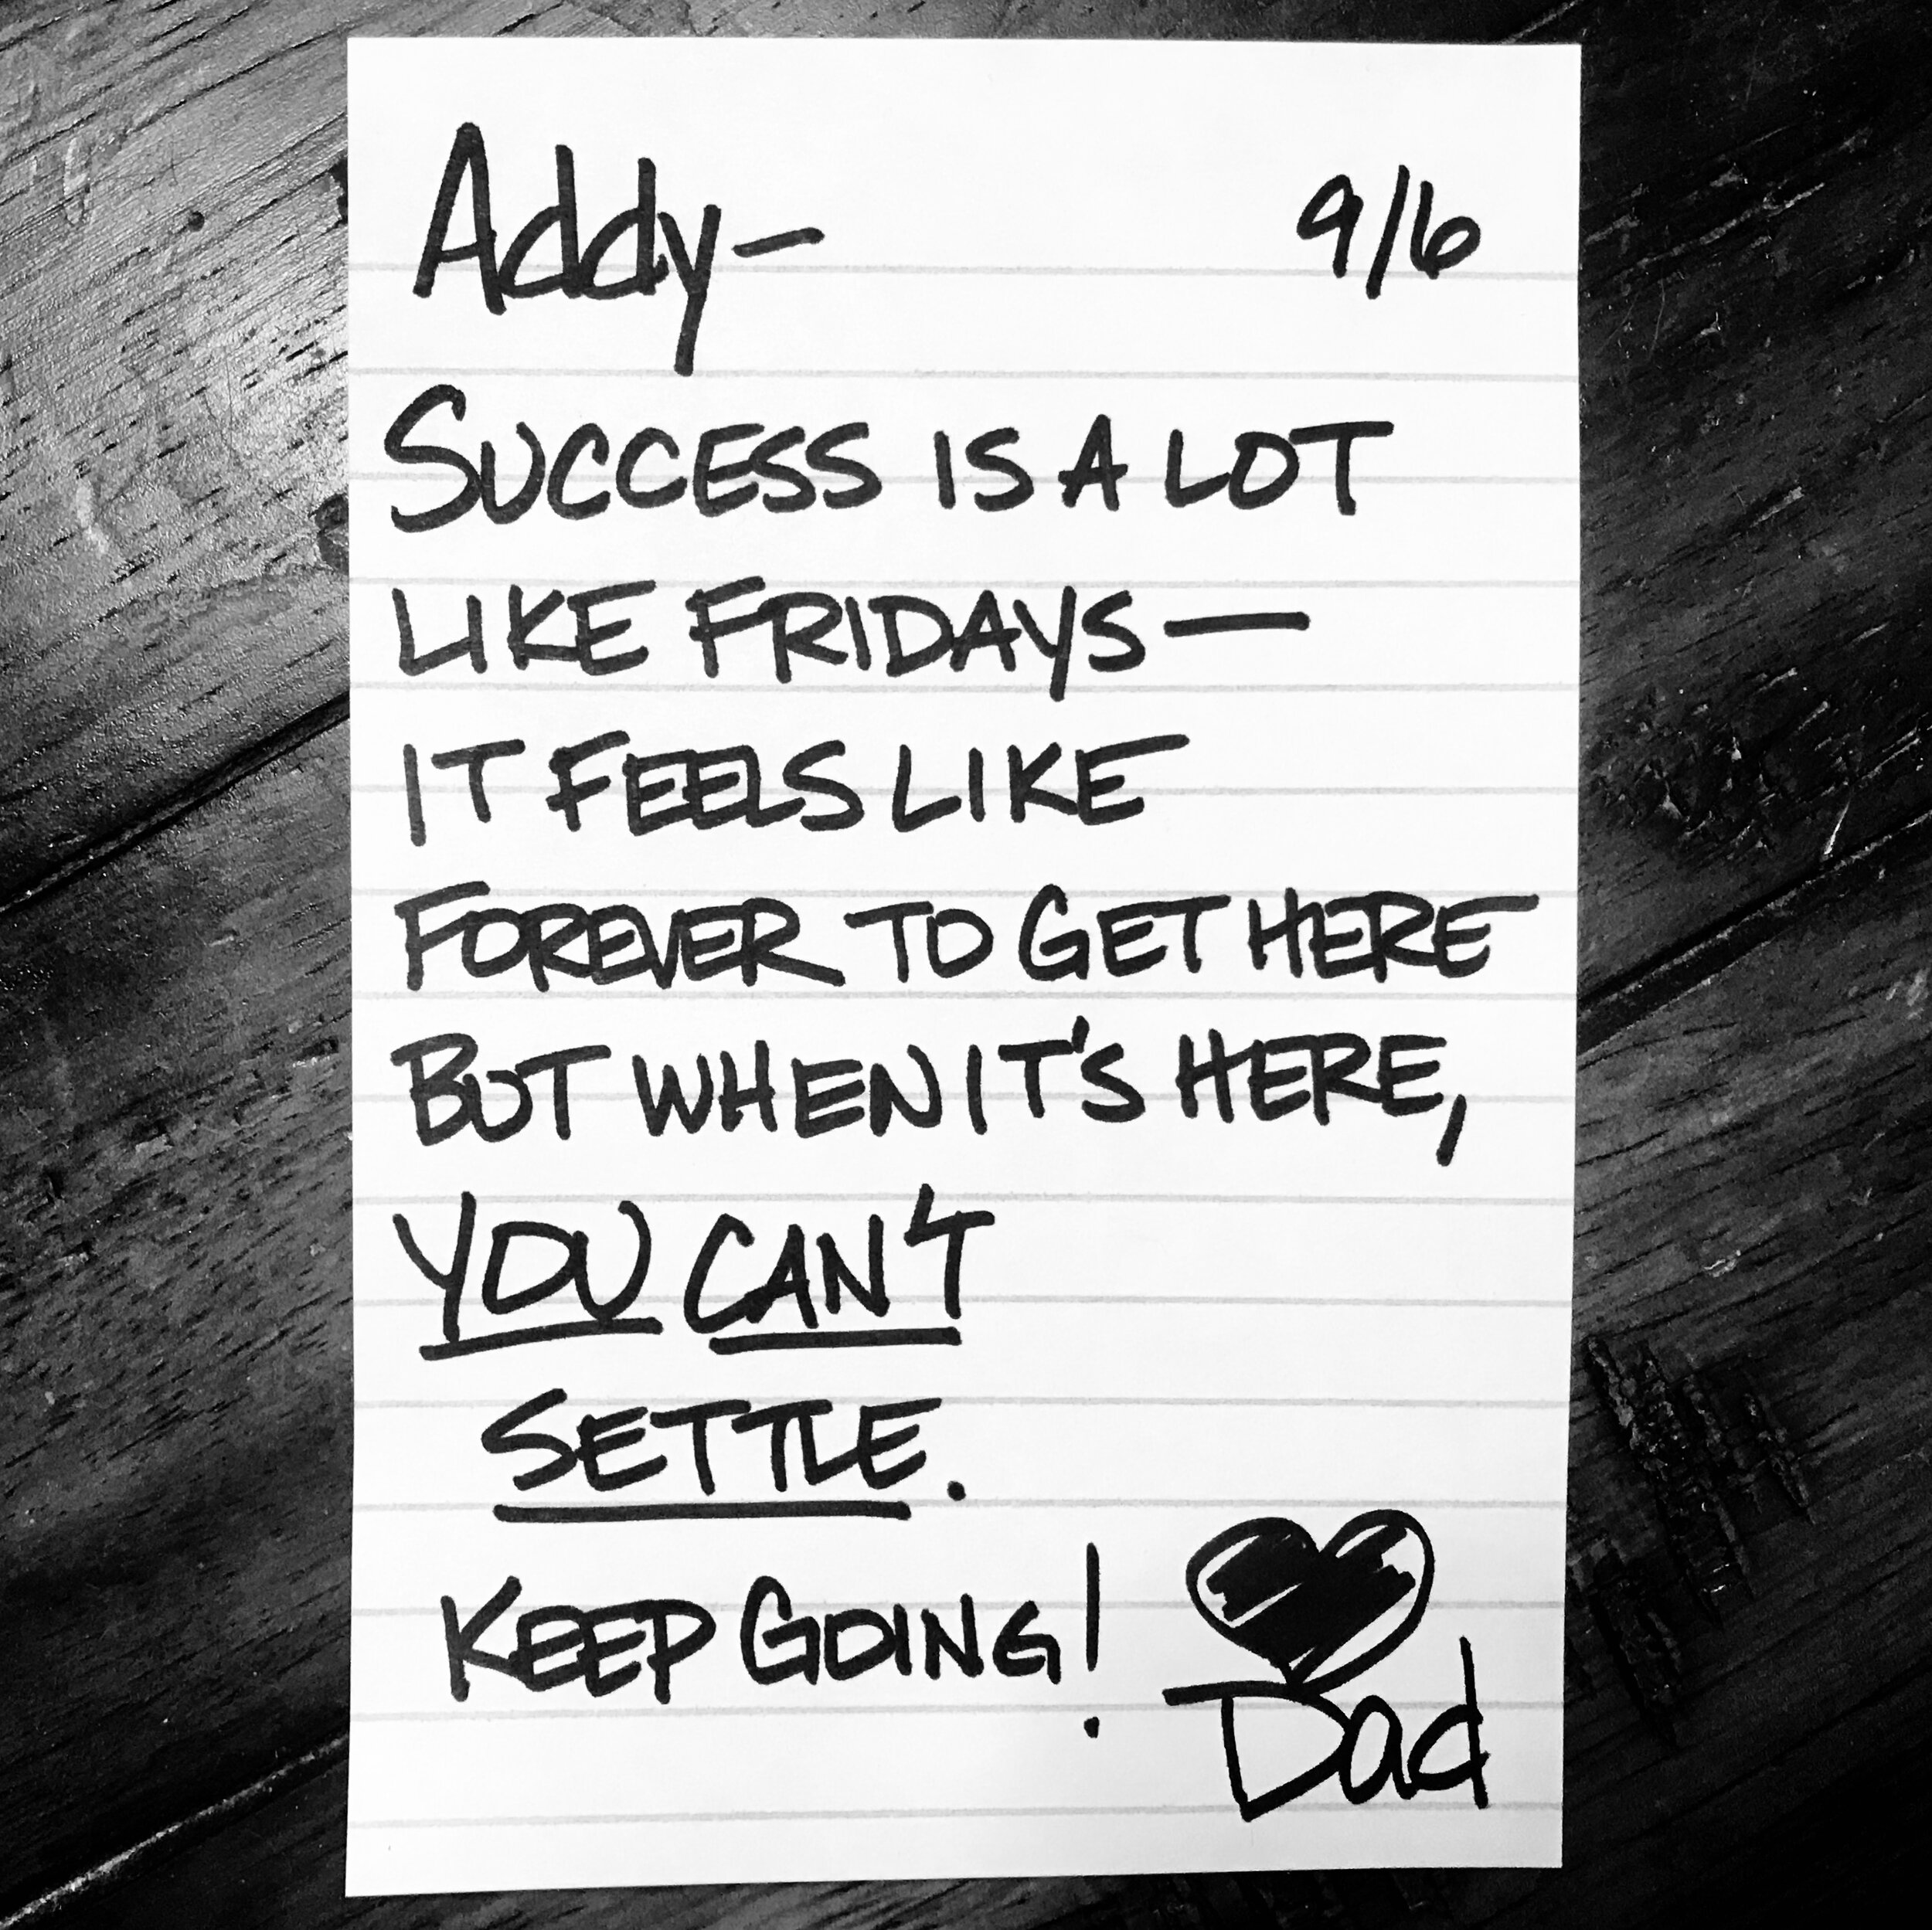 Addy- 9/6
SUCCESS IS A LOT
LIKE FRIDAYS—
IT FEELS LIKE
FOREVER TO GET HERE
BUT WHEN IT'S HERE,
YOU CAN'T
SETTLE.
KEEP GOING!
Dad